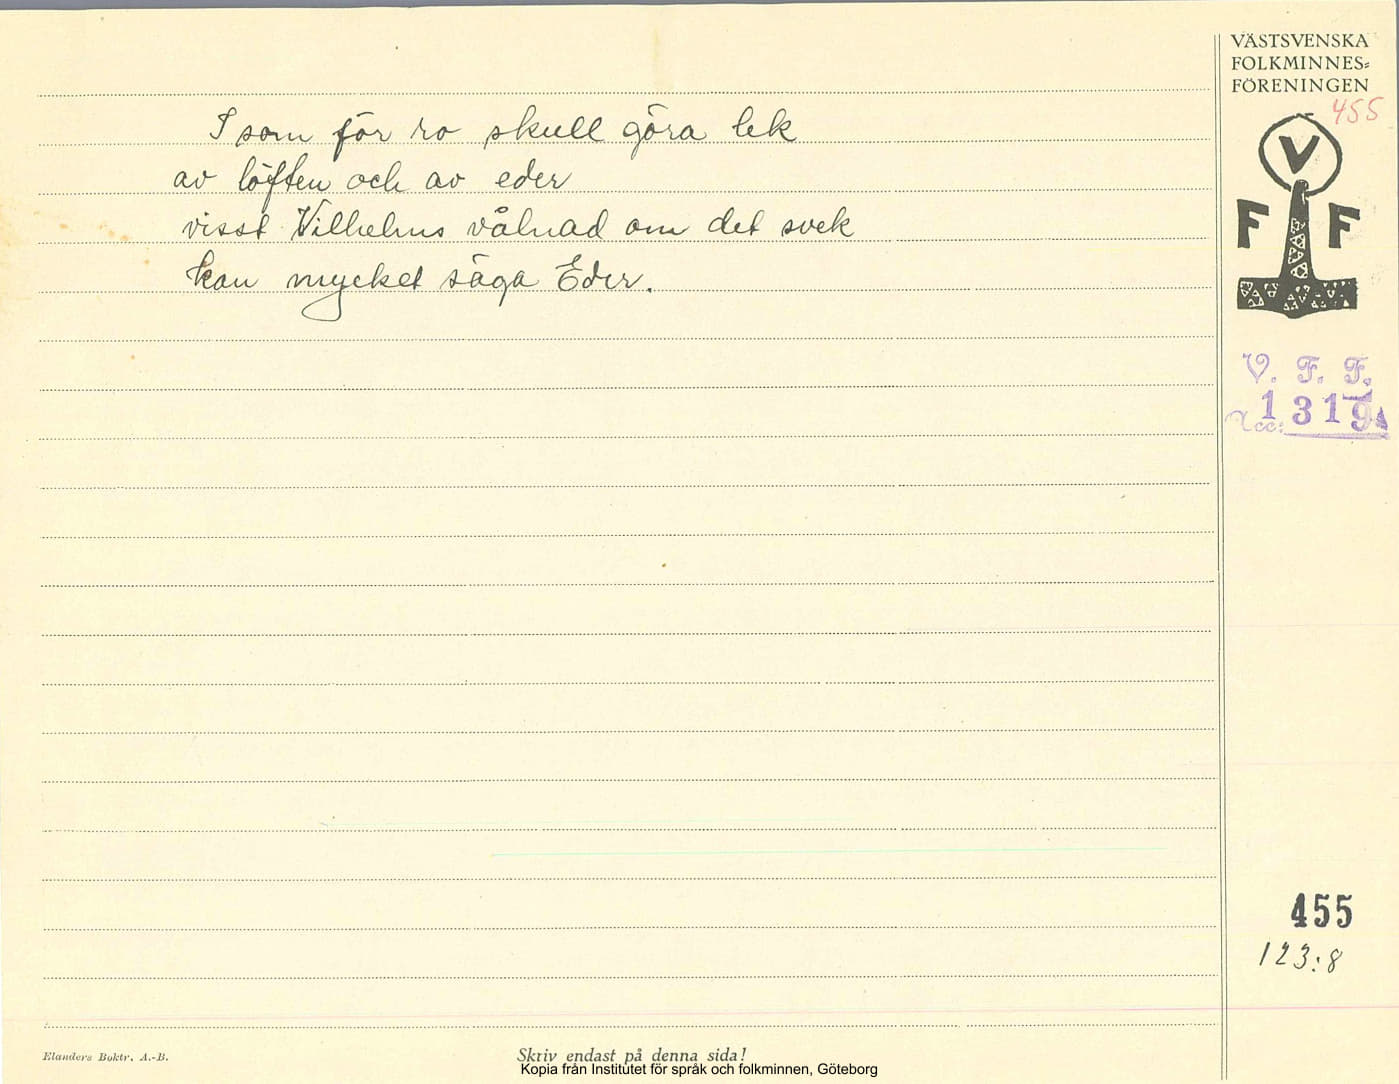 VÄSTSVENSKA
FOLKMINNES=
FÖRENINGEN
455
I som för ro skull göra lek
av löften och av eder
visst Vilhelms vålnad om det svek
kan mycket säga Eder.
V
F F
V. F. F.
Acc: 1319
455
123:8
Elanders Boktr. A.-B.
Skriv endast på denna sida!
Kopia från Institutet för språk och folkminnen, Göteborg